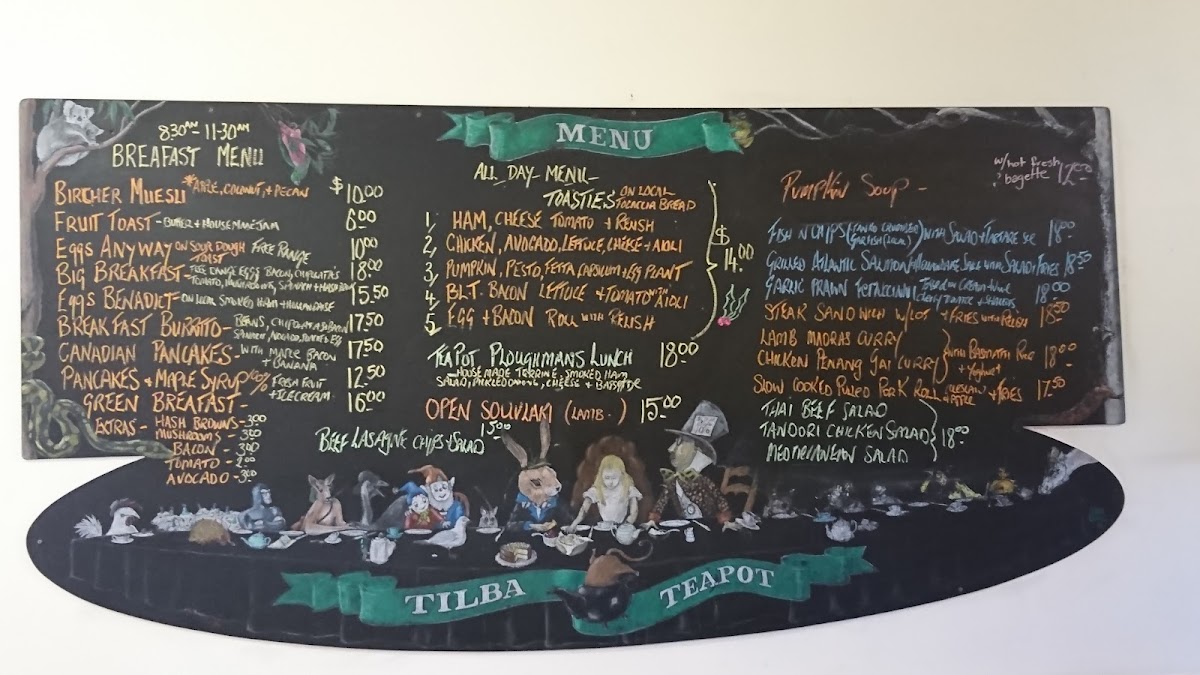 MENU
8.30AM - 11-30AM
BREAFAST MENU
BIRCHER MUESLI *APPLE, COCONUT, + PECAN $10.00
FRUIT TOAST - BUTTER + HOUSE MADE JAM 6.00
EGGS ANYWAY ON SOUR DOUGH TOAST FREE RANGE 10.00
BIG BREAKFAST - FREE RANGE EGGS BACON, CHIPOLATAS 18.00
TOMATO, MUSHROOMS, SPINACH +
EGGS BENADICT - ON LOCAL SMOKED HAM + HOLLANDAISE 15.50
BREAKFAST BURRITO - BEANS, 17.50
SPINACH, AVOCADO, POACHED EGG
CANADIAN PANCAKES - WITH MAPLE BACON 17.50
+ BANANA
PANCAKES + MAPLE SYRUP FRESH FRUIT 12.50
+ ICECREAM
GREEN BREAKFAST - 16.00
EXTRAS - HASH BROWNS - 3.00
MUSHROOMS - 3.00
BACON - 3.00
TOMATO - 2.00
AVOCADO - 3.00
ALL DAY MENU -
TOASTIES ON LOCAL
FOCACCIA BREAD
1, HAM, CHEESE TOMATO + RELISH
2, CHICKEN, AVOCADO, LETTUCE, CHEESE + AIOLI
$14.00
3, PUMPKIN, PESTO, FETTA CAPSIUM + EGG PLANT
4, B.L.T. BACON LETTUCE + TOMATO AIOLI
5, EGG + BACON ROLL WITH RELISH
TEAPOT PLOUGHMANS LUNCH 18.00
HOUSE MADE TERRINE, SMOKED HAM
SALAD, PICKLED ONIONS, CHEESE +
OPEN SOUVLAKI (LAMB.) 15.00
BEEF LASAGNE CHIPS + SALAD 15.00
PUMPKIN SOUP - w/hot fresh
bagette 12.00
FISH N CHIPS WITH SALAD + TARTARE SCE 18.00
GRILLED ATLANTIC SALMON + HOLLANDAISE SCE WITH SALAD + FRIES 18.50
GARLIC PRAWN 18.00
STEAK SANDWICH W/LOT + FRIES WITH RELISH 18.50
LAMB MADRAS CURRY
CHICKEN PENANG GAI CURRY WITH BASMATI RICE + Yoghurt 18.00
SLOW COOKED PULLED PORK ROLL COLESLAW + APPLE + FRIES 17.50
THAI BEEF SALAD
TANDORI CHICKEN SALAD 18.00
MEDITERANEAN SALAD
TILBA TEAPOT